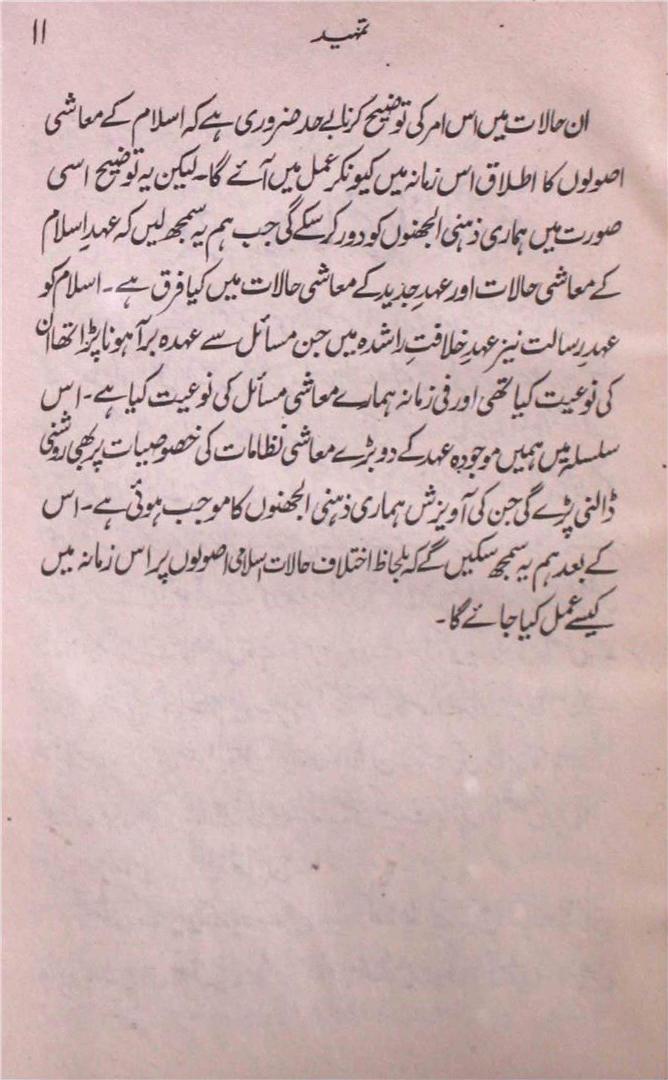 تمہید ۱۱
ان حالات میں اس امر کی توضیح کرنا بے حد ضروری ہے کہ اسلام کے معاشی
اصولوں کا اطلاق اس زمانہ میں کیونکر عمل میں آئے گا۔ لیکن یہ توضیح اسی
صورت میں ہماری ذہنی الجھنوں کو دور کر سکے گی جب ہم یہ سمجھ لیں کہ عہدِ اسلام
کے معاشی حالات اور عہدِ جدید کے معاشی حالات میں کیا فرق ہے۔ اسلام کو
عہدِ رسالت نیز عہدِ خلافتِ راشدہ میں جن مسائل سے عہدہ برآ ہونا پڑا تھا ان
کی نوعیت کیا تھی اور فی زمانہ ہمارے معاشی مسائل کی نوعیت کیا ہے۔ اس
سلسلہ میں ہمیں موجودہ عہد کے دو بڑے معاشی نظامات کی خصوصیات پر بھی روشنی
ڈالنی پڑے گی جن کی آویزش ہماری ذہنی الجھنوں کا موجب ہوئی ہے۔ اس
کے بعد ہم یہ سمجھ سکیں گے کہ بلحاظ اختلاف حالات اسلامی اصولوں پر اس زمانہ میں
کیسے عمل کیا جائے گا۔